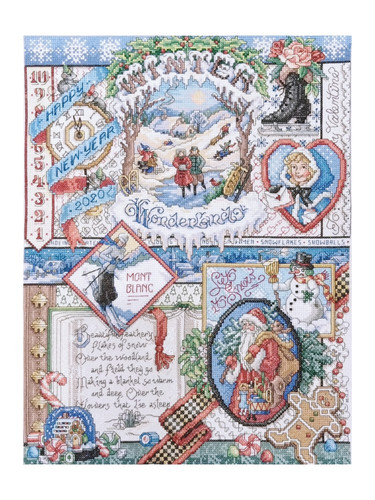 WINTER
HAPPY
NEW YEAR
2020
10
9
8
7
6
5
4
3
2
1
Valentine
Wonderland
SNOWFLAKES • SNOWBALLS
MONT
BLANC
Beautiful feathery
flakes of snow
Over the woodland
and field they go
Making a blanket so warm
and deep Over the
flowers that lie asleep